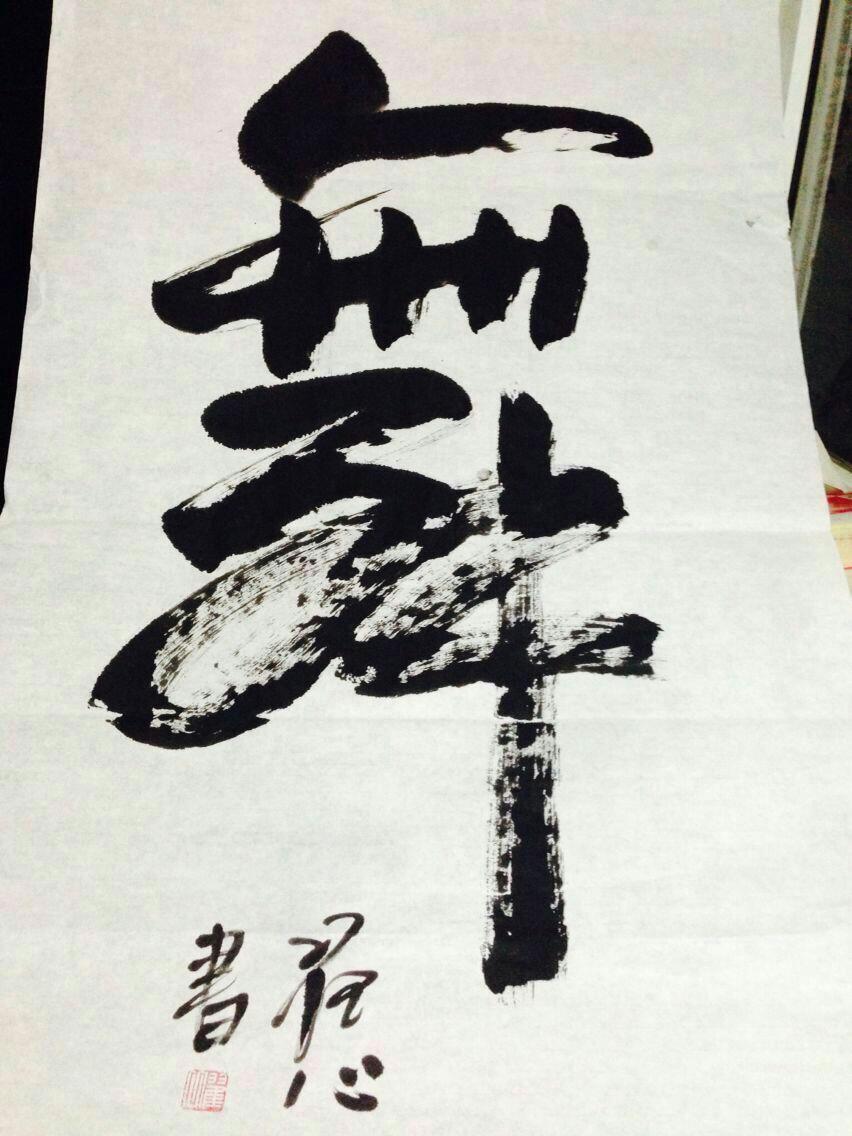 舞
翟心
書